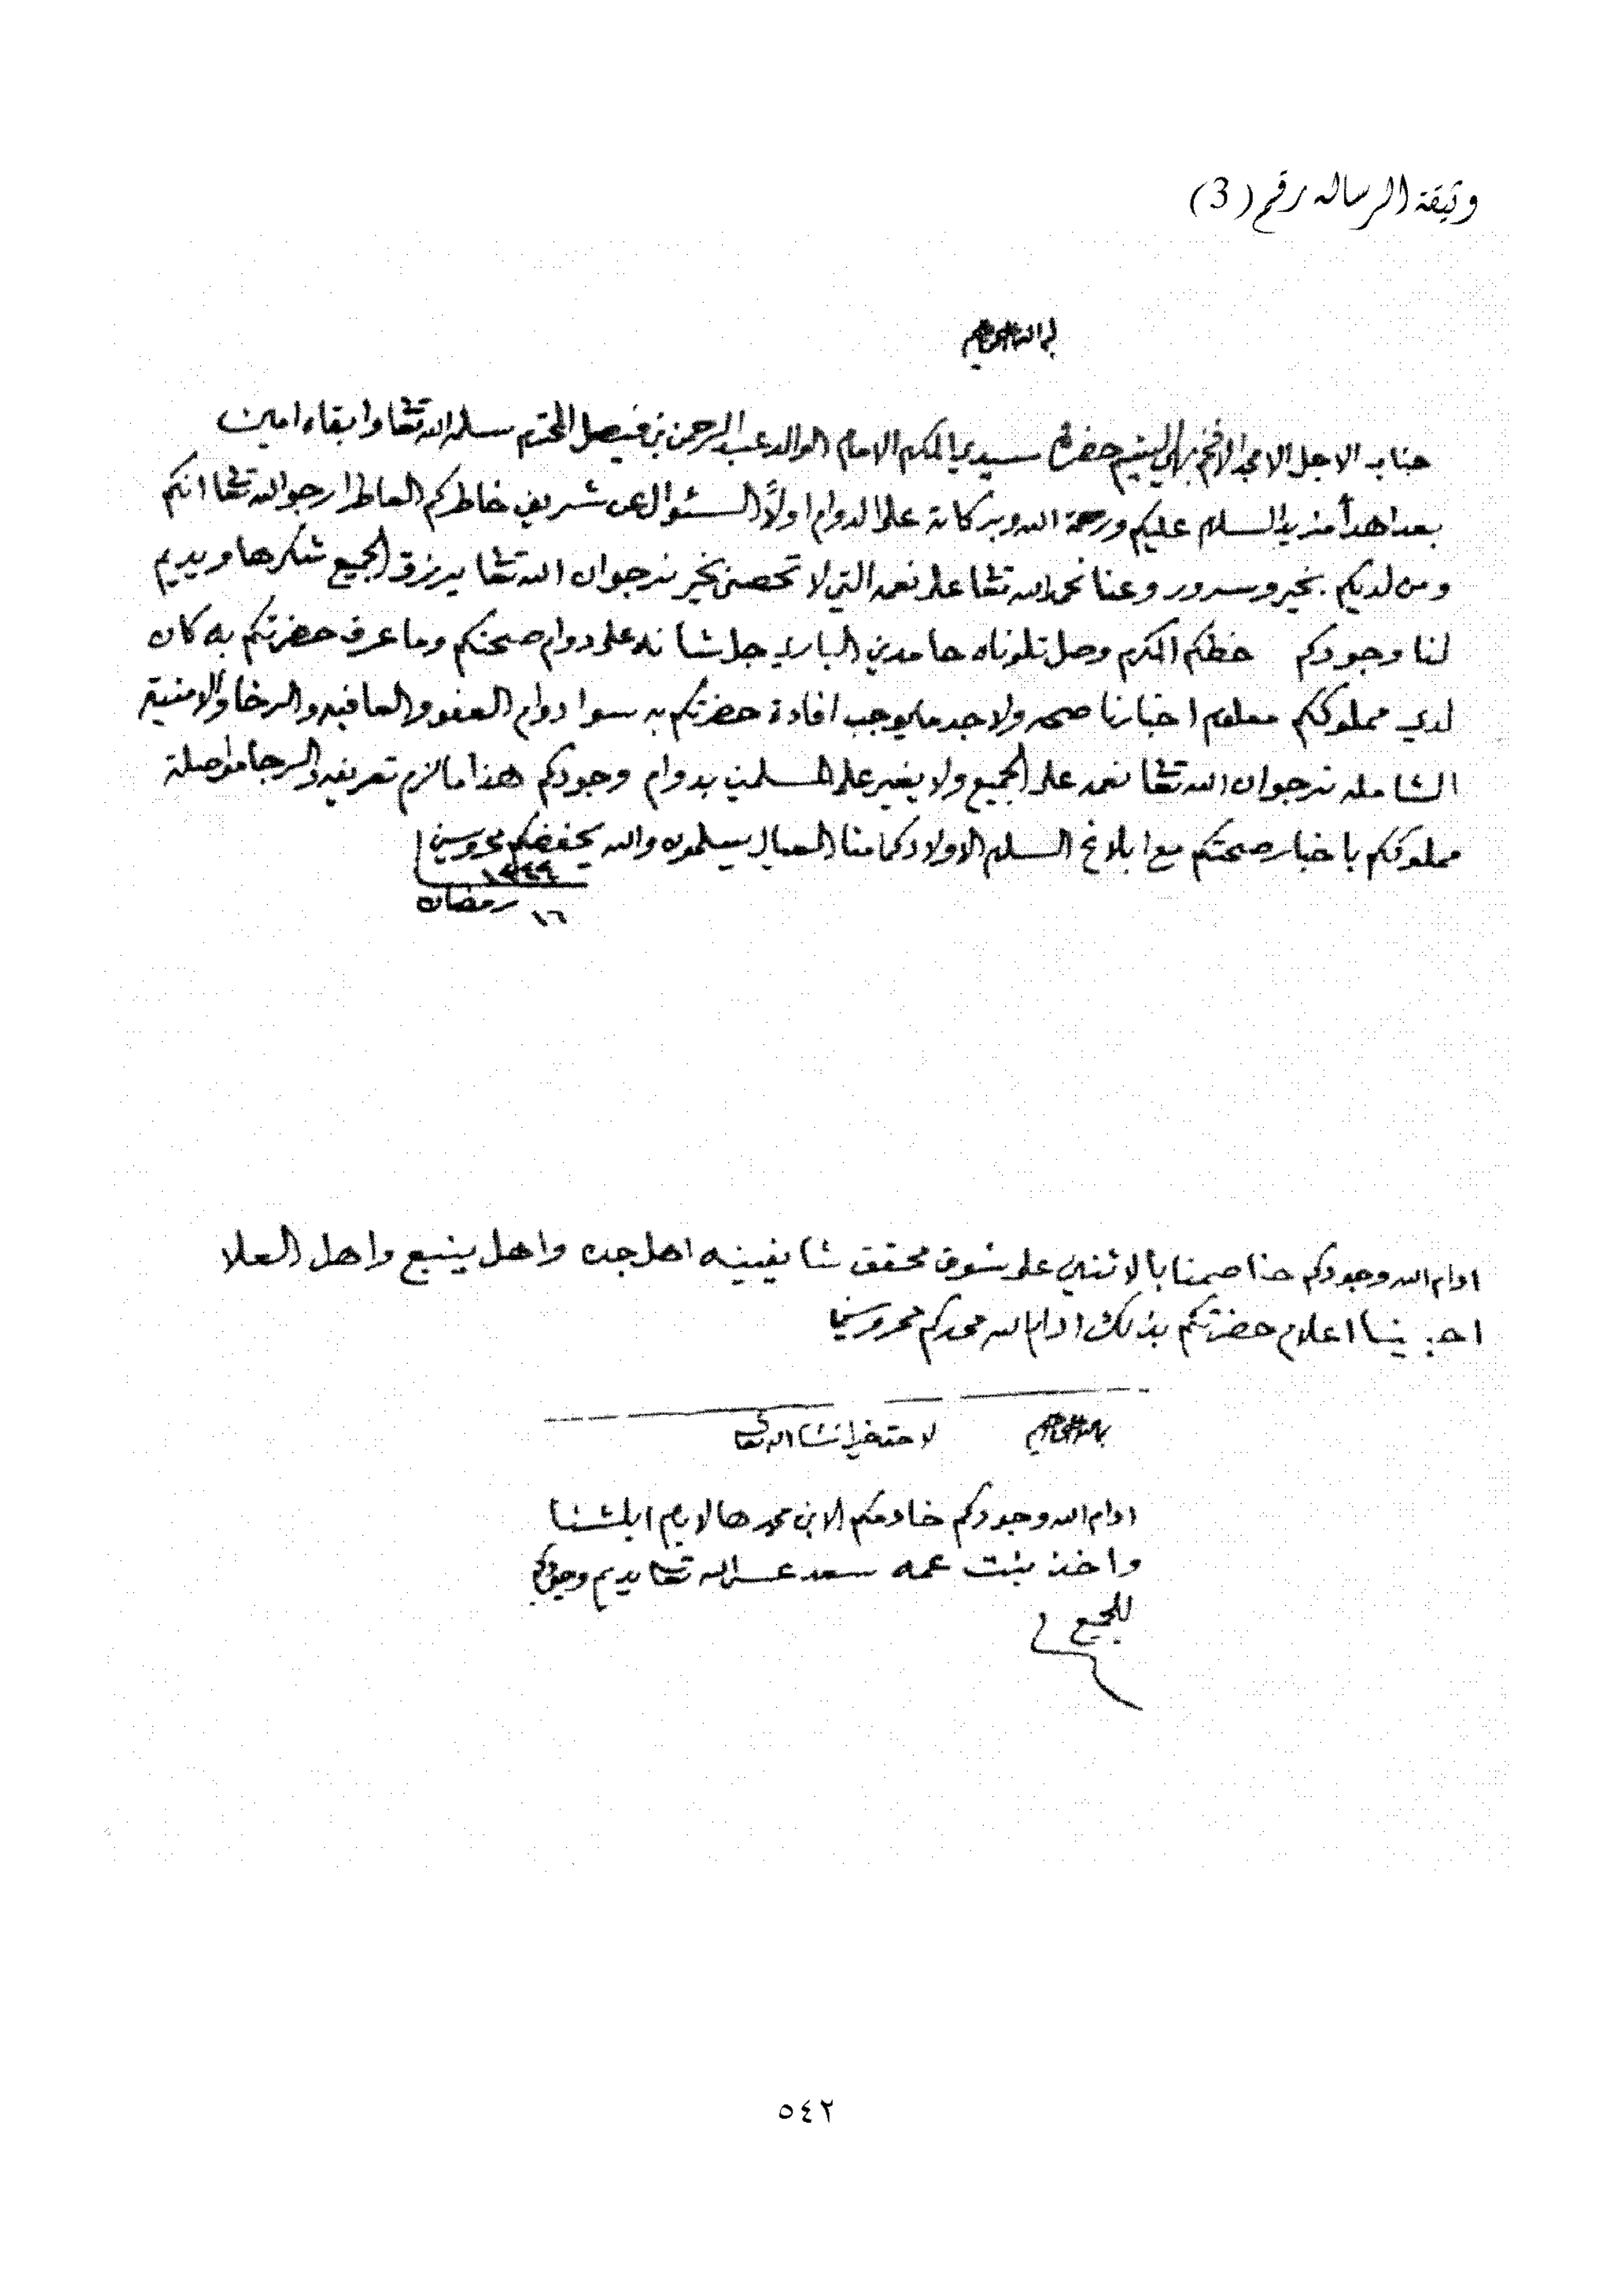 وثيقة الرساله رقم (3)
بسم الله الرحمن الرحيم
جناب الاجل الامجد الافخم بهي الشيم حضرة سيدي المكرم الامام الوالد عبدالرحمن بن فيصل المحترم سلمه الله تعالى وابقاه امين
بعد اهدأ مزيد السلام عليكم ورحمة الله وبركاته على الدوام اولاً السئوال عن شريف خاطركم العاطر ارجو الله تعالى انكم
ومن لديكم بخير وسرور وعنا نحمد الله تعالى على نعمه التي لا تحصى بخير نرجو ان الله تعالى يرزق الجميع شكرها ويديم
لنا وجودكم خطكم المكرم وصل تلوناه حامدين الباري جل شانه على دوام صحتكم وما عرف حضرتكم به كان
لدي مملوككم معلوم اخبارنا صحه ولا جد ما يوجب افادة حضرتكم به سوا دوام العفو والعافيه والرخا والامنية
الشامله نرجو ان الله تعالى نعمه على الجميع ولا يغير على المسلمين بدوام وجودكم هذا ما لزم تعريفه والرجا مواصلة
مملوككم باخبار صحتكم مع ابلاغ السلام الاولاد كما منا العيال يسلمون والله يحفضكم محروسين
١٣٤٩
١٦ رمضان
ادام الله وجودكم حنا صمنا بالاثنين على شوف محقق شايفينه اهل جده واهل ينبع واهل العلا
احبينا اعلام حضرتكم بذلك ادام الله مجدكم محروسين
بسم الله الرحمن الرحيم لاحقه خير انشاالله تعالى
ادام الله وجودكم خادمكم الابن محمد هالايام ابلشنا
واخذ بنت عمه سعد عسى الله تعالى يديم وجودكم
للجميع
٥٤٢